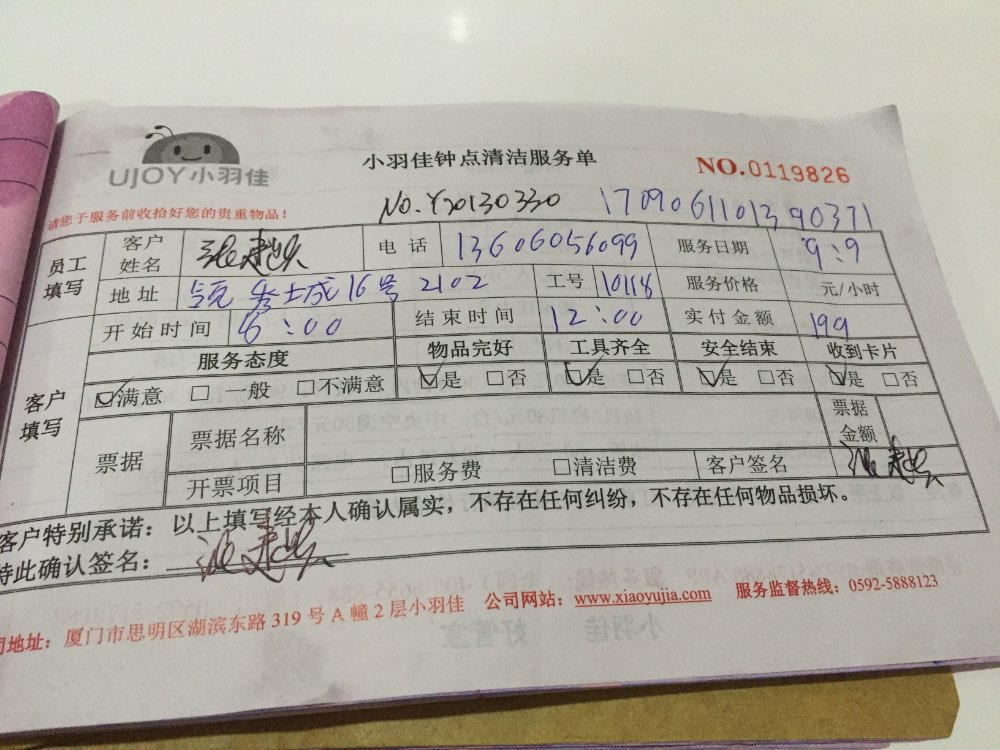 UJOY小羽佳
小羽佳钟点清洁服务单
NO.0119826
请您于服务前收拾好您的贵重物品！
NO.Y20130330 1709061101390371
员工填写 客户姓名 电话 13606056099 服务日期 9:9
地址 士成16号2102 工号 10118 服务价格 元/小时
客户填写 开始时间 6:00 结束时间 12:00 实付金额 199
服务态度 物品完好 工具齐全 安全结束 收到卡片
☑满意 □一般 □不满意 ☑是 □否 ☑是 □否 ☑是 □否 ☑是 □否
票据 票据名称 票据金额
开票项目 □服务费 □清洁费 客户签名
客户特别承诺：以上填写经本人确认属实，不存在任何纠纷，不存在任何物品损坏。
特此确认签名：
司地址：厦门市思明区湖滨东路319号A幢2层小羽佳 公司网站：www.xiaoyujia.com 服务监督热线：0592-5888123